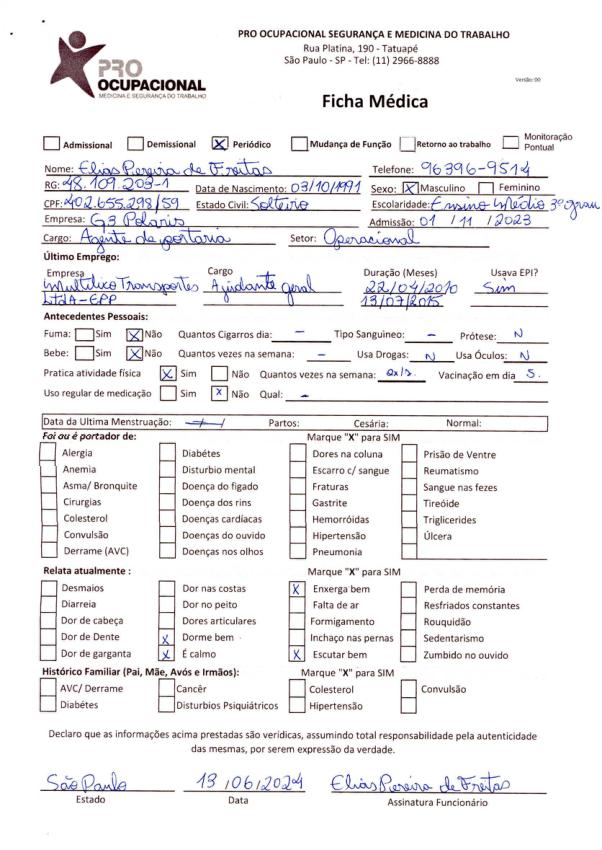 PRO OCUPACIONAL SEGURANÇA E MEDICINA DO TRABALHO
Rua Platina, 190 - Tatuapé
São Paulo - SP - Tel: (11) 2966-8888
PRO
OCUPACIONAL
MEDICINA E SEGURANÇA DO TRABALHO
Versão: 00
Ficha Médica
Admissional Demissional X Periódico Mudança de Função Retorno ao trabalho Monitoração Pontual
Nome: Elias Pereira de Freitas Telefone: 96396-9514
RG: 48.109.203-1 Data de Nascimento: 03/10/1991 Sexo: X Masculino Feminino
CPF: 402.655.298/59 Estado Civil: Solteiro Escolaridade: Ensino Médio 3º grau
Empresa: G3 Polaris Admissão: 01 / 11 / 2023
Cargo: Agente de portaria Setor: Operacional
Último Emprego:
Empresa Cargo Duração (Meses) Usava EPI?
Transportes Ajudante geral 22/04/2010 Sim
LtdA-EPP 13/07/2015
Antecedentes Pessoais:
Fuma: Sim X Não Quantos Cigarros dia: - Tipo Sanguineo: - Prótese: N
Bebe: Sim X Não Quantos vezes na semana: - Usa Drogas: N Usa Óculos: N
Pratica atividade física X Sim Não Quantos vezes na semana: Vacinação em dia S.
Uso regular de medicação Sim X Não Qual: -
Data da Ultima Menstruação: Partos: Cesária: Normal:
Foi ou é portador de: Marque "X" para SIM
Alergia Diabétes Dores na coluna Prisão de Ventre
Anemia Disturbio mental Escarro c/ sangue Reumatismo
Asma/ Bronquite Doença do figado Fraturas Sangue nas fezes
Cirurgias Doença dos rins Gastrite Tireóide
Colesterol Doenças cardíacas Hemorróidas Triglicerides
Convulsão Doenças do ouvido Hipertensão Úlcera
Derrame (AVC) Doenças nos olhos Pneumonia
Relata atualmente : Marque "X" para SIM
Desmaios Dor nas costas X Enxerga bem Perda de memória
Diarreia Dor no peito Falta de ar Resfriados constantes
Dor de cabeça Dores articulares Formigamento Rouquidão
Dor de Dente X Dorme bem Inchaço nas pernas Sedentarismo
Dor de garganta X É calmo X Escutar bem Zumbido no ouvido
Histórico Familiar (Pai, Mãe, Avós e Irmãos): Marque "X" para SIM
AVC/ Derrame Cancêr Colesterol Convulsão
Diabétes Disturbios Psiquiátricos Hipertensão
Declaro que as informações acima prestadas são verídicas, assumindo total responsabilidade pela autenticidade
das mesmas, por serem expressão da verdade.
São Paulo 13 / 06 / 2024 Elias Pereira de Freitas
Estado Data Assinatura Funcionário